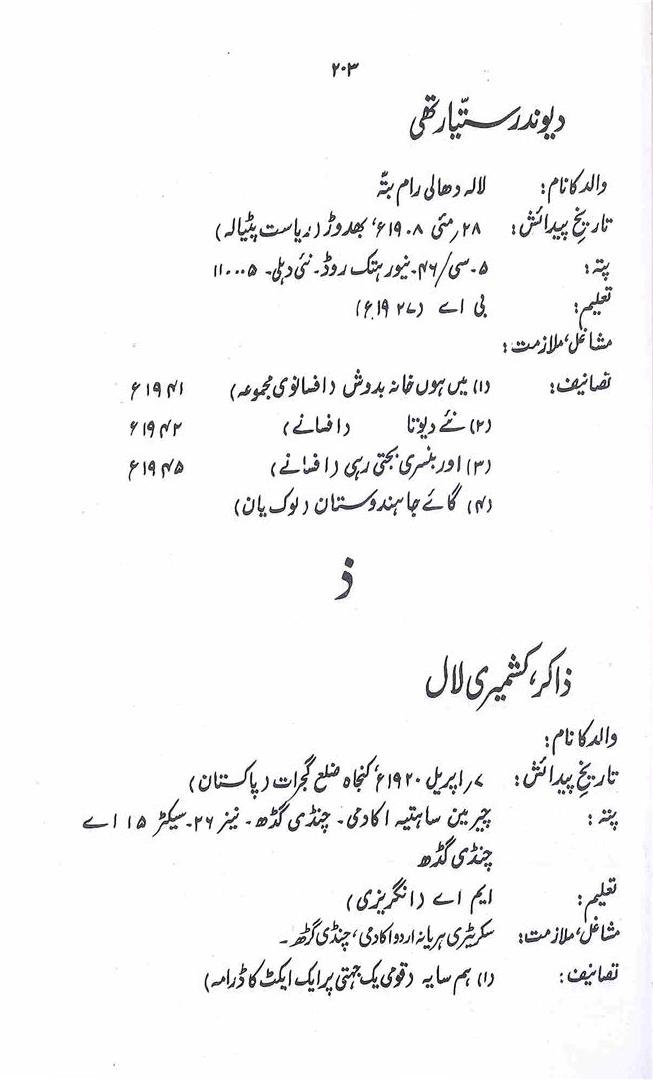 ۲۰۳
دیوندر ستیّارتھی
والد کا نام: لالہ دھالی رام بتّہ
تاریخِ پیدائش: ۲۸؍مئی ۱۹۰۸ء، بھدوڑ (ریاست پٹیالہ)
پتہ: ۵۔سی/۴۶۔نیو رہتک روڈ۔ نئی دہلی۔ ۱۱۰۰۰۵
تعلیم: بی اے (۱۹۲۷ء)
مشاغل، ملازمت:
تصانیف: (۱) میں ہوں خانہ بدوش (افسانوی مجموعہ) ۱۹۴۱ء
(۲) نئے دیوتا (افسانے) ۱۹۴۲ء
(۳) اور بنسری بجتی رہی (افسانے) ۱۹۴۵ء
(۴) گائے جا ہندوستان (لوک یان)
ذ
ذاکر، کشمیری لال
والد کا نام:
تاریخِ پیدائش: ۷؍اپریل ۱۹۲۰ء، کنجاہ ضلع گجرات (پاکستان)
پتہ: چیرمین ساہتیہ اکادمی۔ چنڈی گڈھ۔ نیز ۲۶۔سیکٹر ۱۵ اے
چنڈی گڈھ
تعلیم: ایم اے (انگریزی)
مشاغل، ملازمت: سکریٹری ہریانہ اردو اکادمی، چنڈی گڑھ۔
تصانیف: (۱) ہم سایہ (قومی یک جہتی پر ایک ایکٹ کا ڈرامہ)